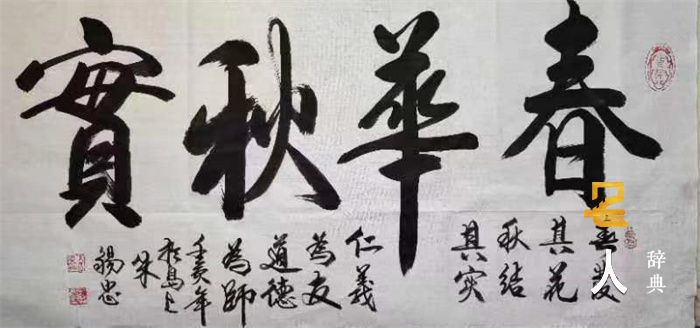 春華秋實
春發
其花
秋結
其实
仁義
為友
道德
為師
壬寅年
於島上
朱
錫忠
名人
辞典